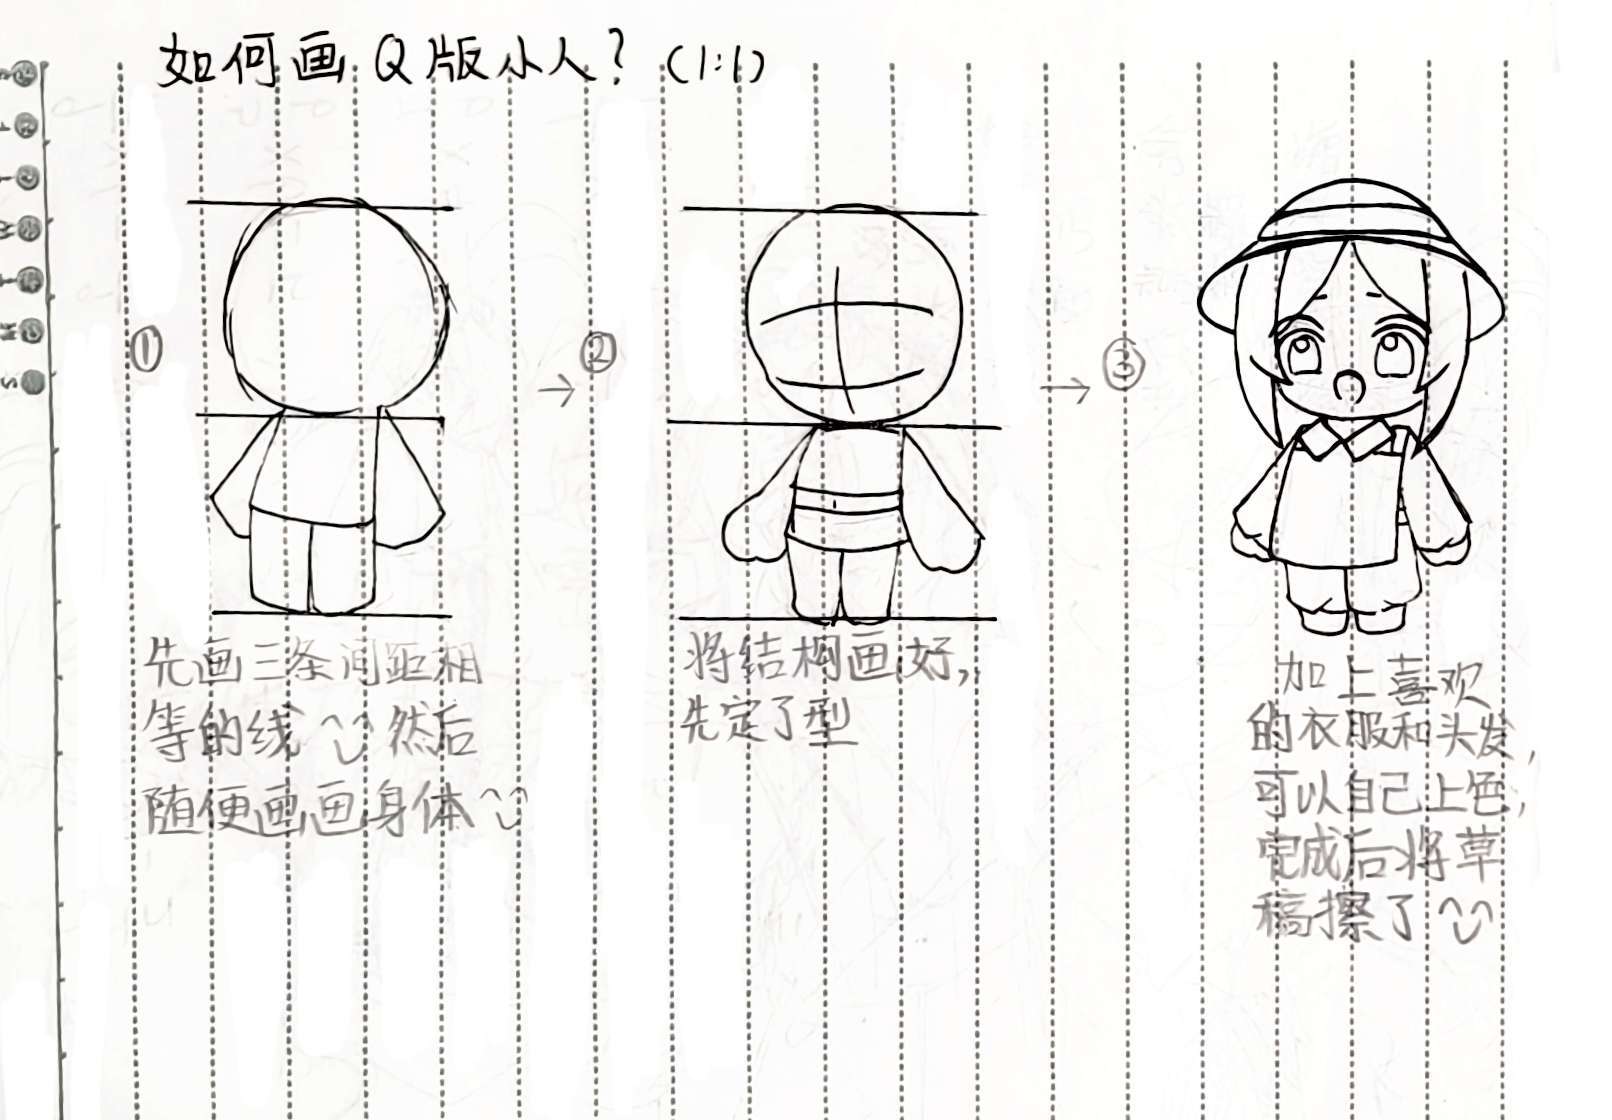 如何画Q版小人？(1:1)
①
先画三条间距相
等的线 然后
随便画画身体
→ ②
将结构画好,
先定了型
→ ③
加上喜欢
的衣服和头发,
可以自己上色,
完成后将草
稿擦了